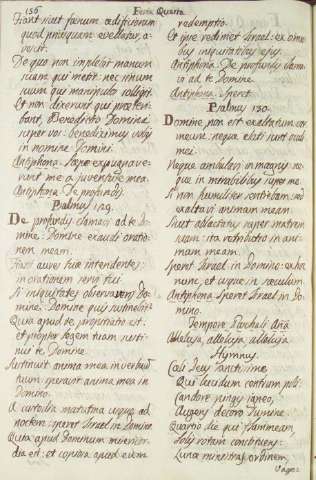 156
Feria Quarta
Fiant sicut fœnum ædificiorum
quod priusquam evellatur, a-
ruit.
De quo non implebit manum
suam, qui metit: nec sinum
suum qui manipulos colligit.
Et non dixerunt qui præteri-
bant, Benedictio Domini
super vos: benediximus vobis
in nomine Domini.
Antiphona. Sæpe expugnave-
runt me a juventute mea.
Antiphona. De profundis.
Psalmus 129.
De profundis clamavi ad te Do-
mine: Domine exaudi oratio-
nem meam.
Fiant aures tuæ intendentes:
in orationem servi tui.
Si iniquitates observaveris Do-
mine: Domine quis sustinebit?
Quia apud te propitiatio est:
et propter legem tuam susti-
nui te Domine.
Sustinuit anima mea in verbo
tuum speravit anima mea in
Domino.
A custodia matutina usque ad
noctem: speret Israel in Domino
Quia apud Dominum misericor-
dia est: et copiosa apud eum
redemptio.
Et ipse redimet Israel: ex omni-
bus iniquitatibus ejus.
Antiphona. De profundis clama-
vi ad te Domine.
Antiphona. Speret.
Psalmus 130.
Domine, non est exaltatum cor
meum: neque elati sunt oculi
mei.
Neque ambulavi in magnis: ne-
que in mirabilibus super me.
Si non humiliter sentiebam: sed
exaltavi animam meam.
Sicut ablactatus super matrem
suam: ita retributio in ani-
ma mea.
Speret Israel in Domino: ex hoc
nunc, et usque in sæculum.
Antiphona. Speret Israel in Do-
mino.
Tempore Paschali Aña
Alleluja, alleluja, alleluja
Hymnus.
Cœli Deus sanctissime
Qui lucidum centrum poli
Candore pingis igneo,
Augens decoro lumine.
Quarto die qui flammeam,
Solis rotam constituens:
Lunæ ministras ordinem,
Vagos